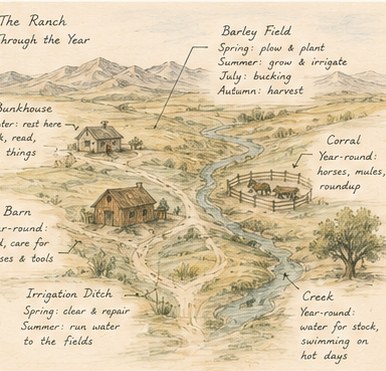 The Ranch
Through the Year
Barley Field
Spring: plow & plant
Summer: grow & irrigate
July: bucking
Autumn: harvest
Bunkhouse
rest here
read,
things
Corral
Year-round:
horses, mules,
roundup
Barn
care for
& tools
Irrigation Ditch
Spring: clear & repair
Summer: run water
to the fields
Creek
Year-round:
water for stock,
swimming on
hot days